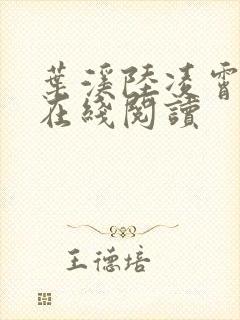 葉溪陸凌霄
在綫閱讀
王德培